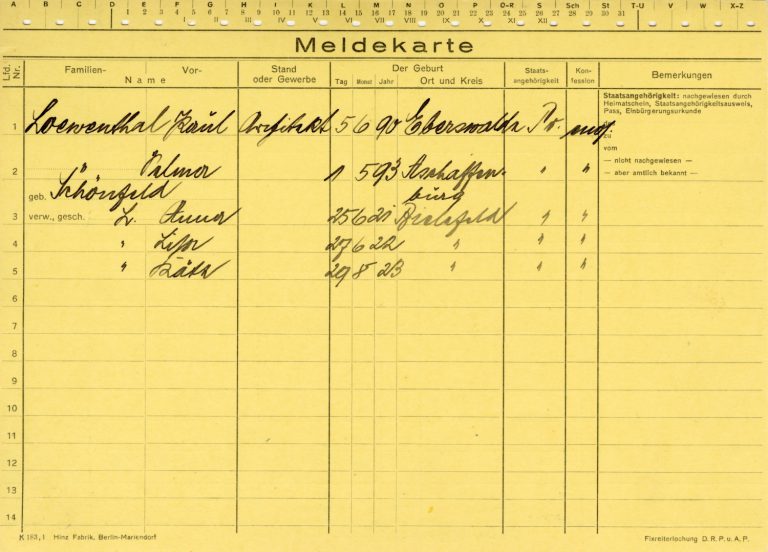 A B C D E F G H J K L M N O P Q-R S Sch St T-U V W X-Z
1 2 3 4 5 6 7 8 9 10 11 12 13 14 15 16 17 18 19 20 21 22 23 24 25 26 27 28 29 30 31
I II III IV V VI VII VIII IX X XI XII
Meldekarte
Lfd. Nr. Familien- Vor- Stand Der Geburt Staats- Kon- Bemerkungen
Name oder Gewerbe Tag Monat Jahr Ort und Kreis angehörigkeit fession
Staatsangehörigkeit: nachgewesen durch
Heimatschein, Staatsangehörigkeitsausweis,
Pass, Einbürgerungsurkunde
1 Loewenthal Paul Architekt 5 6 90 Eberswalde Pr.
zu
vom
2 " 1 5 93 Aschaffen- " "
— nicht nachgewiesen —
— aber amtlich bekannt —
burg
geb. Schönfeld
3 verw., gesch. L. Anna 25 6 21 Bielefeld " "
4 " 27 6 22 " " "
5 " Käte 29 8 23 " " "
6
7
8
9
10
11
12
13
14
K 183,1 Hinz Fabrik, Berlin-Mariendorf Fixreiterlochung D. R. P. u. A. P.